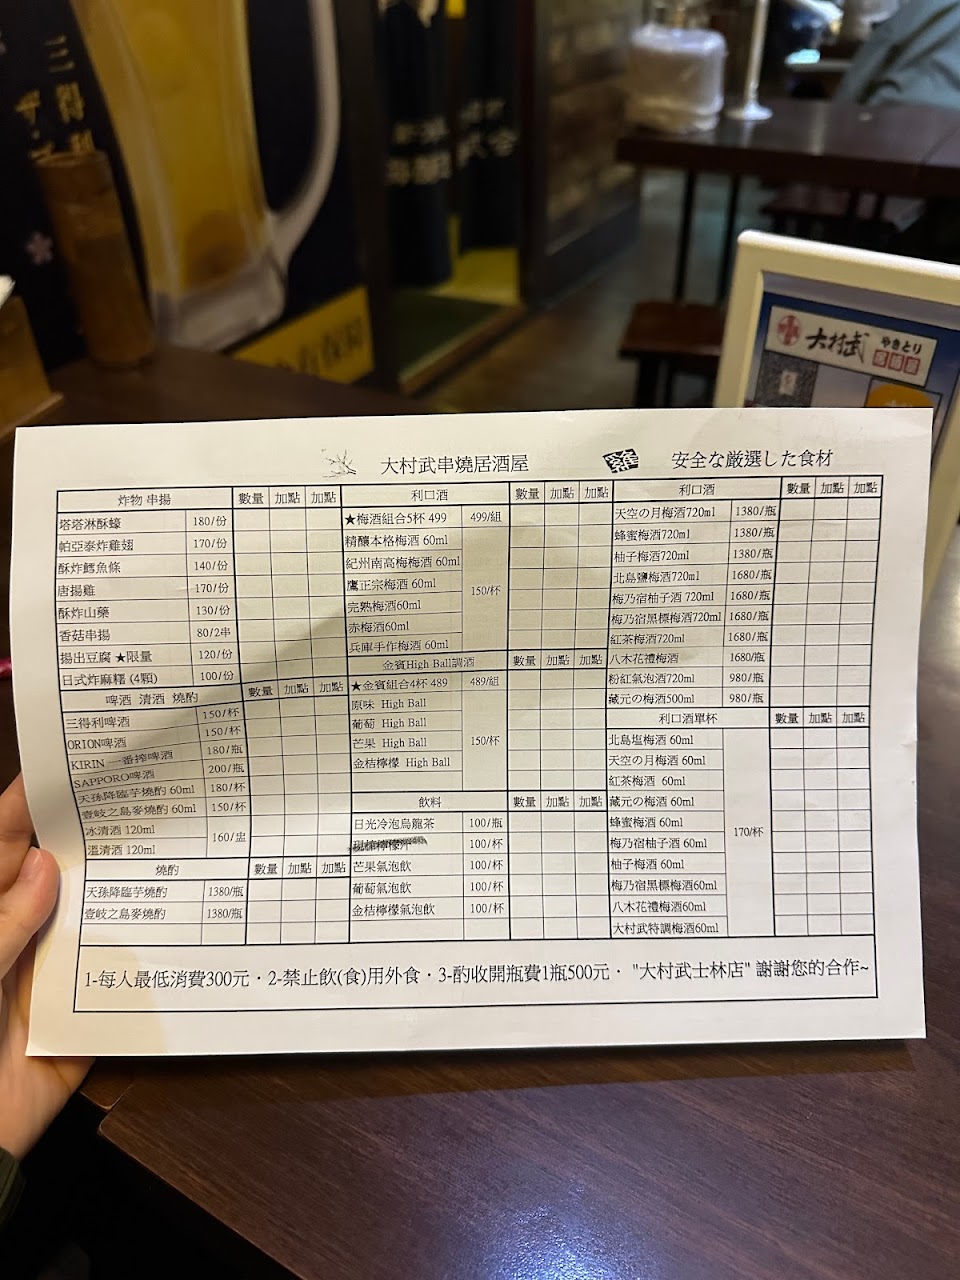 三得利
大村武 やきとり
大村武串燒居酒屋 雞 安全な厳選した食材
炸物 串揚 數量 加點 加點
塔塔淋酥蠔 180/份
帕亞泰炸雞翅 170/份
酥炸鱈魚條 140/份
唐揚雞 170/份
酥炸山藥 130/份
香菇串揚 80/2串
揚出豆腐 ★限量 120/份
日式炸麻糬 (4顆) 100/份
啤酒 清酒 燒酌 數量 加點 加點
三得利啤酒 150/杯
ORION啤酒 150/杯
KIRIN 一番搾啤酒 180/瓶
SAPPORO啤酒 200/瓶
天孫降臨芋燒酌 60ml 180/杯
壹岐之島麥燒酌 60ml 150/杯
冰清酒 120ml 160/盅
溫清酒 120ml
燒酌 數量 加點 加點
天孫降臨芋燒酌 1380/瓶
壹岐之島麥燒酌 1380/瓶
利口酒 數量 加點 加點
★梅酒組合5杯 499 499/組
精釀本格梅酒 60ml 150/杯
紀州南高梅梅酒 60ml
鷹正宗梅酒 60ml
完熟梅酒60ml
赤梅酒60ml
兵庫手作梅酒 60ml
金賓High Ball調酒 數量 加點 加點
★金賓組合4杯 489 489/組
原味 High Ball 150/杯
葡萄 High Ball
芒果 High Ball
金桔檸檬 High Ball
飲料 數量 加點 加點
日光冷泡烏龍茶 100/瓶
100/杯
芒果氣泡飲 100/杯
葡萄氣泡飲 100/杯
金桔檸檬氣泡飲 100/杯
利口酒 數量 加點 加點
天空の月梅酒720ml 1380/瓶
蜂蜜梅酒720ml 1380/瓶
柚子梅酒720ml 1380/瓶
北島鹽梅酒720ml 1680/瓶
梅乃宿柚子酒 720ml 1680/瓶
梅乃宿黑標梅酒720ml 1680/瓶
紅茶梅酒720ml 1680/瓶
八木花禮梅酒 1680/瓶
粉紅氣泡酒720ml 980/瓶
藏元の梅酒500ml 980/瓶
利口酒單杯 數量 加點 加點
北島塩梅酒 60ml 170/杯
天空の月梅酒 60ml
紅茶梅酒 60ml
藏元の梅酒 60ml
蜂蜜梅酒 60ml
梅乃宿柚子酒 60ml
柚子梅酒 60ml
梅乃宿黑標梅酒60ml
八木花禮梅酒60ml
大村武特調梅酒60ml
1-每人最低消費300元．2-禁止飲(食)用外食．3-酌收開瓶費1瓶500元． "大村武士林店" 謝謝您的合作~